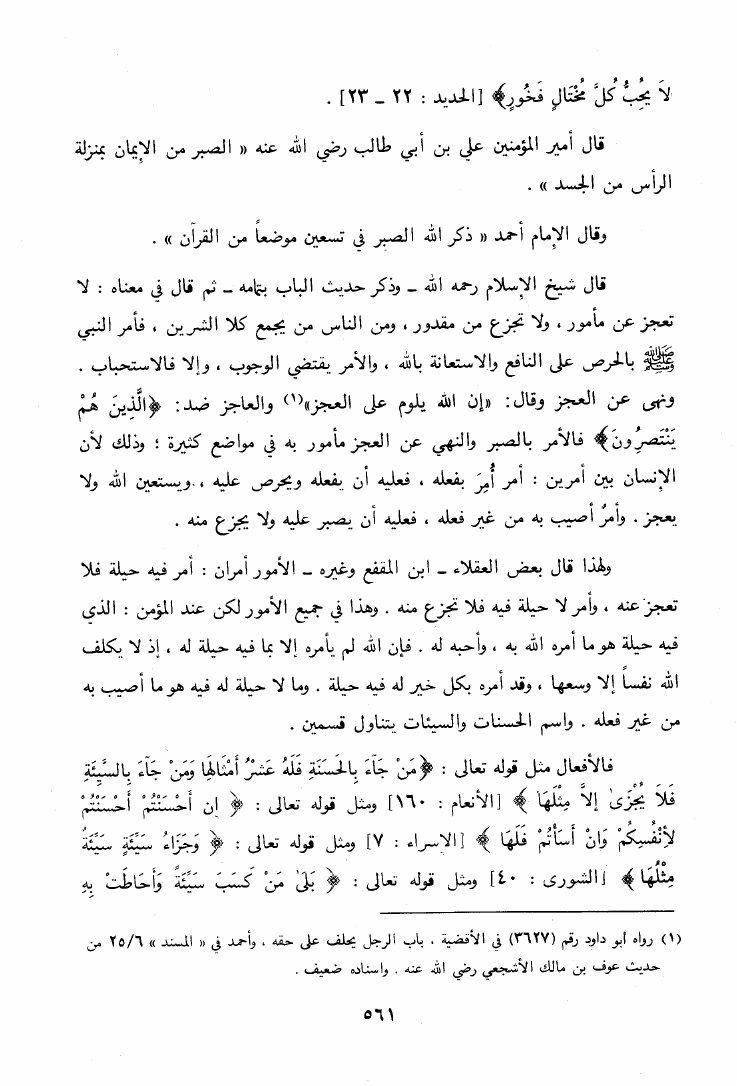 لاَ يُحِبُّ كُلَّ مُخْتَالٍ فَخُورٍ﴾ [الحديد : ٢٢ ـ ٢٣] .
قال أمير المؤمنين علي بن أبي طالب رضي الله عنه « الصبر من الإيمان بمنزلة
الرأس من الجسد » .
وقال الإمام أحمد « ذكر الله الصبر في تسعين موضعاً من القرآن » .
قال شيخ الإسلام رحمه الله ـ وذكر حديث الباب بتمامه ـ ثم قال في معناه : لا
تعجز عن مأمور ، ولا تجزع من مقدور ، ومن الناس من يجمع كلا الشرين ، فأمر النبي
ﷺ بالحرص على النافع والاستعانة بالله ، والأمر يقتضي الوجوب ، وإلا فالاستحباب .
ونهى عن العجز وقال: «إن الله يلوم على العجز»(١) والعاجز ضد: ﴿الَّذِينَ هُمْ
يَنْتَصِرُونَ﴾ فالأمر بالصبر والنهي عن العجز مأمور به في مواضع كثيرة ؛ وذلك لأن
الإنسان بين أمرين : أمر أُمِرَ بفعله ، فعليه أن يفعله ويحرص عليه ، ويستعين الله ولا
يعجز . وأمرٌ أصيب به من غير فعله ، فعليه أن يصبر عليه ولا يجزع منه .
ولهذا قال بعض العقلاء ـ ابن المقفع وغيره ـ الأمور أمران : أمر فيه حيلة فلا
تعجز عنه ، وأمر لا حيلة فيه فلا تجزع منه . وهذا في جميع الأمور لكن عند المؤمن : الذي
فيه حيلة هو ما أمره الله به ، وأحبه له . فإن الله لم يأمره إلا بما فيه حيلة له ، إذ لا يكلف
الله نفساً إلا وسعها ، وقد أمره بكل خير له فيه حيلة . وما لا حيلة له فيه هو ما أصيب به
من غير فعله . واسم الحسنات والسيئات يتناول قسمين .
فالأفعال مثل قوله تعالى : ﴿مَنْ جَآءَ بِالْحَسَنَةِ فَلَهُ عَشْرُ أَمْثَالِهَا وَمَنْ جَآءَ بِالسَّيِّئَةِ
فَلاَ يُجْزَىٰ إِلاَّ مِثْلَهَا ﴾ [الأنعام : ١٦٠] ومثل قوله تعالى : ﴿ إِن أَحْسَنْتُمْ أَحْسَنْتُمْ
لأِنْفُسِكُمْ وَانْ أَسَأْتُمْ فَلَهَا ﴾ [الإسراء : ٧] ومثل قوله تعالى : ﴿ وَجَزَاءُ سَيِّئَةٍ سَيِّئَةٌ
مِثْلُهَا﴾ [الشورى : ٤٠] ومثل قوله تعالى : ﴿ بَلَىٰ مَنْ كَسَبَ سَيِّئَةً وَأَحَاطَتْ بِهِ
(١) رواه أبو داود رقم (٣٦٢٧) في الأقضية ، باب الرجل يحلف على حقه ، وأحمد في « المسند » ٢٥/٦ من
حديث عوف بن مالك الأشجعي رضي الله عنه . واسناده ضعيف .
٥٦١